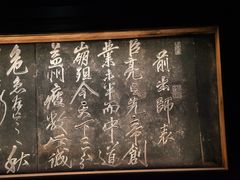 前出師表
臣亮言先帝創
業未半而中道
崩殂今天下三分
益州疲敝此誠
危急存亡之秋